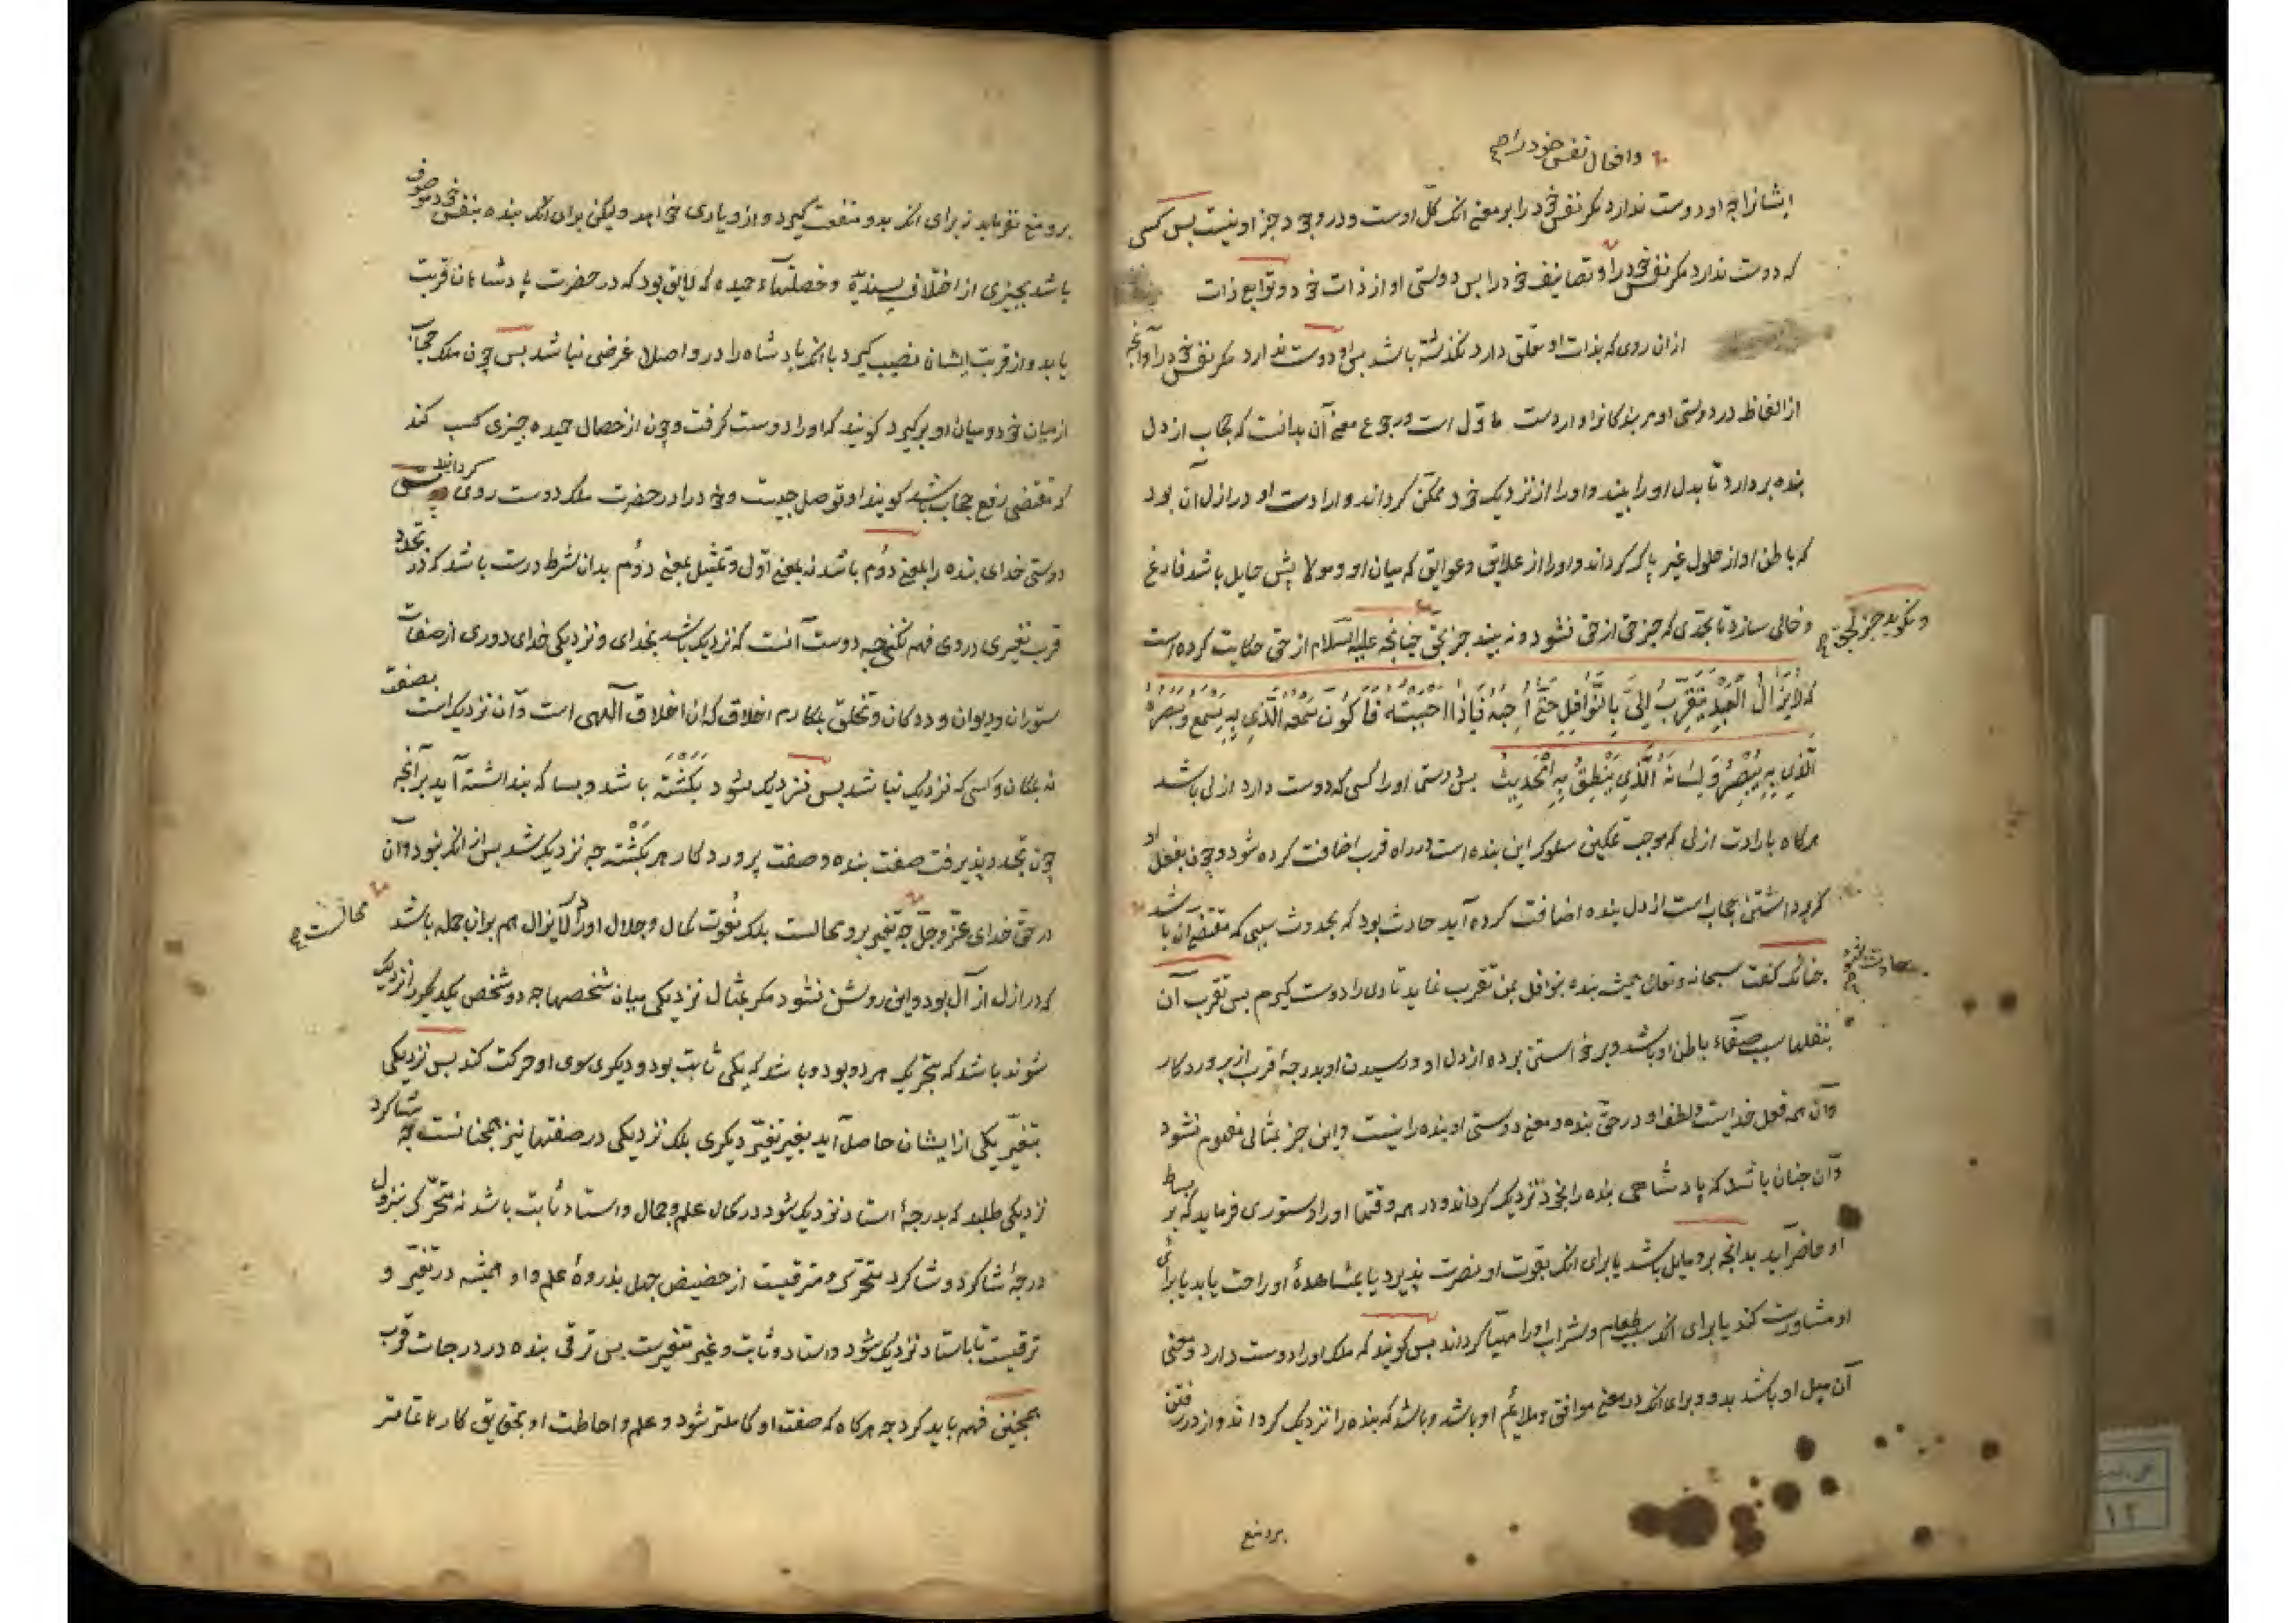 وافعال نفس خود را صح
ایشانرا چه او دوست ندارد مکر نفس خود را بر معنی انک کل اوست و در وجود جز او نیست بس کسی
که دوست ندارد مکر نفس خود را و تصانیف خود را بس دوستی او از ذات خود و توابع ذات
ازان روی که بذات او تعلق دارد نکذشته باشد بس او دوست ندارد مکر نفس خود را و آنجه
از الفاظ در دوستی او مر بندکانرا وارد است ماؤل است و رجوع معنی آن بدانست که حجاب از دل
بنده بردارد تا بدل او را بیند و او را از نزدیک خود ممکّن کرداند و ارادت او در ازل آن بود
که باطن او از حلول غیر پاک کرداند و او را از علایق و عوایق که میان او و مولایش حایل باشد فارغ
و خالی سازد تا بحدی که جز حق از حق نشنود و نه بیند جز بحق چنانجه علیه السلام از حق حکایت کرده است
و نکوید جز بحق صح
که لایَزالُ العَبدُ یَتَقَرَّبُ اِلَیَّ بِالنَّوافِلِ حَتّی اُحِبَّهُ فَاِذا اَحبَبتُهُ فَاَکُونُ سَمعَهُ الَّذی بِهِ یَسمَعُ وَبَصَرَهُ
الَّذی بِهِ یُبصِرُ وَلِسانَهُ الَّذی یَنطِقُ بِهِ الحَدیث بس دوستی او را کسی که دوست دارد ازلی باشد
هرکاه بارادت ازلی که موجب تمکین سلوک این بنده است در راه قرب اضافت کرده شود و چون بفعل او
که برداشتن حجاب است از دل بنده اضافت کرده آید حادث بود که بحدوث سببی که مقتضی آن باشد
حادث شود صح
چنانک کفت سبحانه و تعالی همیشه بنده بنوافل بمن تقرب نماید تا وی را دوست کیرم بس تقرب آن
بنفلها سبب صفاء باطن او باشد و برخاستن برده از دل او و رسیدن او بدرجۀ قرب از پروردکار
و آن همه فعل خدایست و لطف او در حق بنده و معنی دوستی او بنده را نیست و این جز بمثالی مفهوم نشود
و آن چنان باشد که پادشاهی بنده را بخود نزدیک کرداند و در همه وقتها او را دستوری فرماید که بر بساط
او حاضر آید بدانجه برو مایل باشد یا برای انک بقوت او نصرت پذیرد یا بمشاهدۀ او راحت یابد یا برای
او مشاورت کند یا برای انک سبب طعام و شراب او را مهیّا کرداند بس کویند که ملک او را دوست دارد و معنی
آن میل او باشد بدو و برای انک در معنی موافق و ملایم او باشد و باشد که بنده را نزدیک کرداند و از در رفتن
برو منع
برو منع نفرماید نه برای انک بدو منفعت کیرد و از و یاری خواهد ولیکن برای انک بنده بنفس خود موصوف
باشد بچیزی از اخلاق پسندیده و خصلتهاء حمیده که لایق بود که در حضرت پادشاهان قربت
یابد و از قربت ایشان نصیب کیرد با انک پادشاه را در و اصلا غرضی نباشد بس چون ملک حجاب
از میان خود و میان او برکیرد کویند که او را دوست کرفت و چون از خصال حمیده چیزی کسب کند
که مقتضی رفع حجاب باشد کویند او توصل جست و خود را در حضرت ملک دوست روی کردانید بس
دوستی خدای بنده را بمعنی دوُم باشد نه بمعنی اوّل و تمثیل بمعنی دوُم بدان شرط درست باشد که در تجدد
قرب تغیری در وی فهم نکنی چه دوست آنست که نزدیک باشد بخدای و نزدیکی خدای دوری از صفات
ستوران و دیوان و ددکان و تخلق بمکارم اخلاق که ان اخلاق آلهی است و آن نزدیک است بصفت
نه بمکان و کسی که نزدیک نباشد بس نزدیک شود بکشته باشد و بسا که بنداشته آید بر آنجه
چون تجدد پذیرفت صفت بنده و صفت پروردکار هر بکشته چه نزدیک شد بس از انک نبود و آن
در حق خدای عزّ وجلّ چه تغیر بر وی محالست بلک نعُوت کمال و جلال او را در لایزال هم بران جمله باشد
محالست صح
که در ازل آزال بود و این روشن نشود مکر بمثال نزدیکی میان شخصها چه دو شخص یکدیکر را نزدیک
شوند باشد که بتحریک هر دو بود و باشد که یکی ثابت بود و دیکری سوی او حرکت کند بس نزدیکی
بتغیّر یکی از ایشان حاصل آید بغیر تغیّر دیکری بلک نزدیکی در صفتها نیز همچنانست چه شاکرد
نزدیکی طلبد که بدرجۀ استاد نزدیک شود در کمال علم و جمال و استاد ثابت باشد نه متحرّک بنزول
درجۀ شاکرد و شاکرد متحرّک و مترقیست از حضیض جهل بذروۀ علم و او همیشه در تغیّر و
ترقیست تا باستاد نزدیک شود و استاد ثابت و غیر متغیرست بس ترقی بنده در درجات قرب
همچنین فهم باید کرد چه هرکاه که صفت او کاملتر شود و علم و احاطت او بحقایق کارها تمامتر